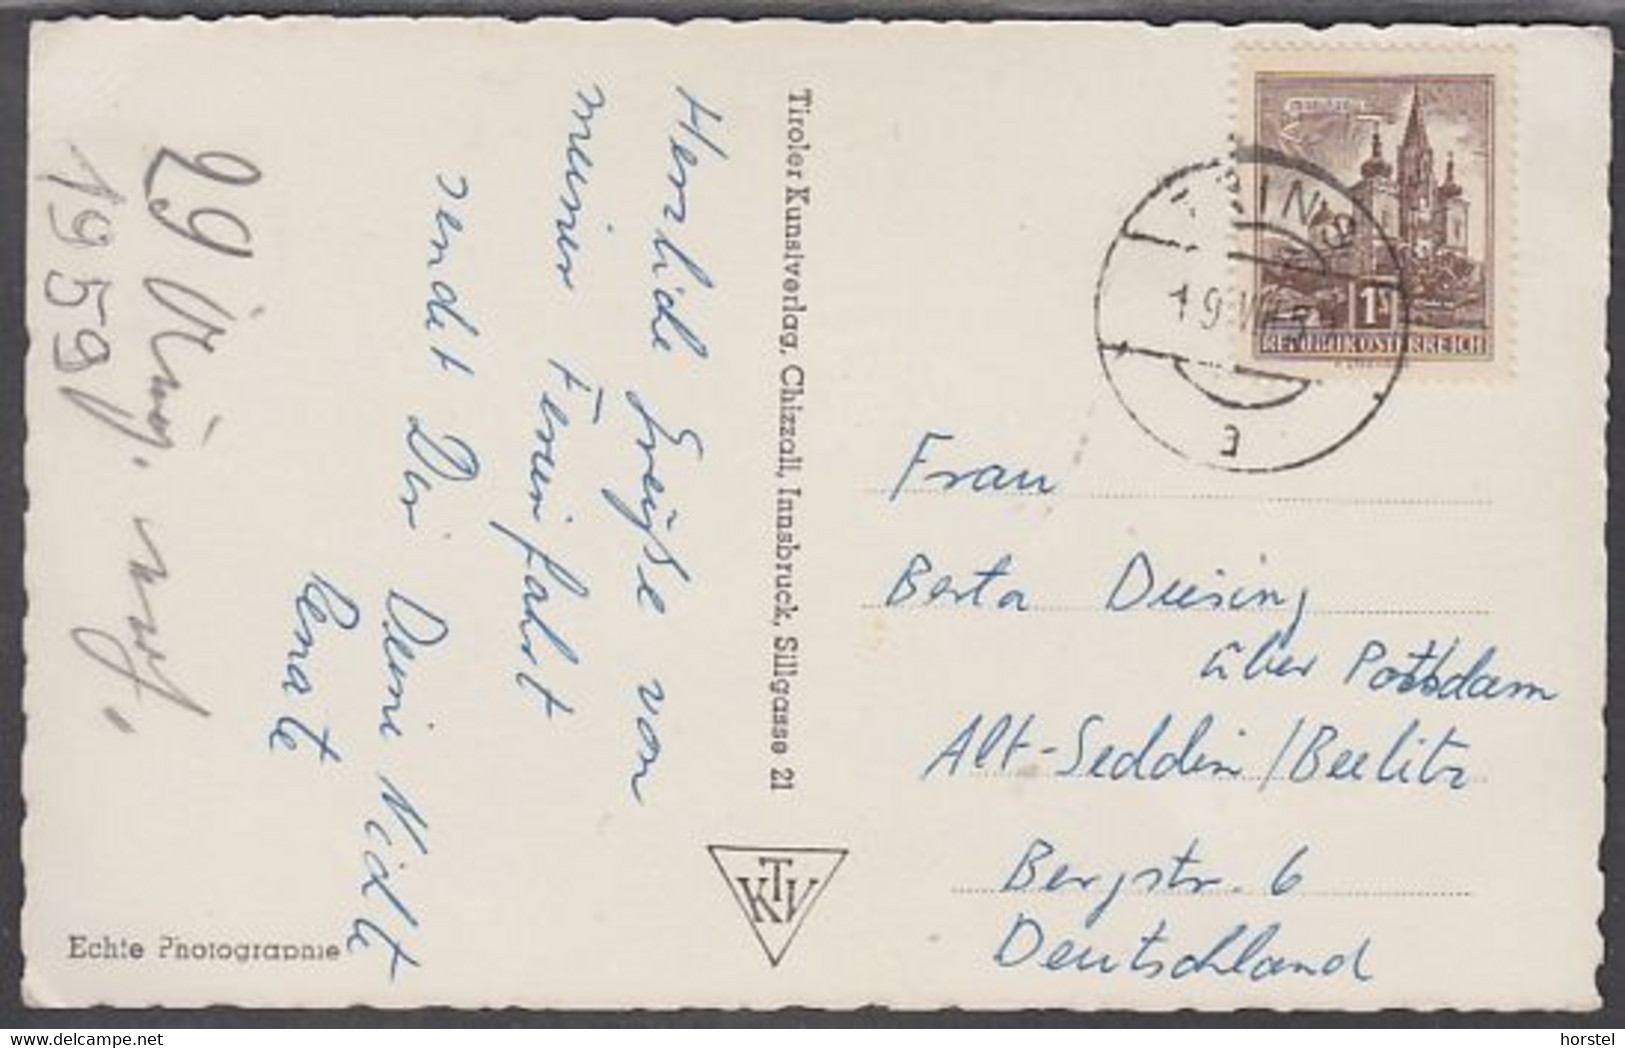 Herzliche Grüße von
meiner Ferienfahrt
sendet Dir Deine Nichte
Renate
29
1959
Tiroler Kunstverlag, Chizzali, Innsbruck, Sillgasse 21
KTV
Echte Photographie
1 S
REPUBLIK ÖSTERREICH
a
Frau
Berta Diesing
über Potsdam
Alt-Seddin/Beelitz
Bergstr. 6
Deutschland
© delcampe.net
horstel